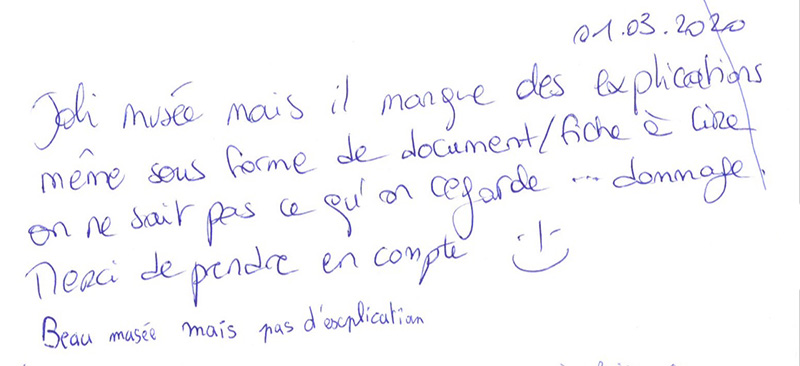 01.03.2020
Joli musée mais il manque des explications
même sous forme de document/fiche à lire
on ne sait pas ce qu'on regarde ... dommage!
Merci de prendre en compte
Beau musée mais pas d'explication